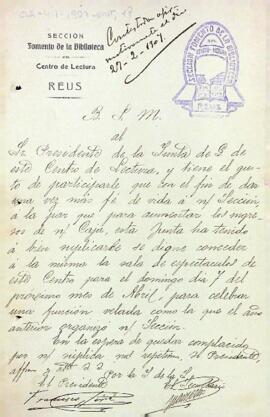 SECCION
Fomento de la Biblioteca
DEL
Centro de Lectura
REUS
Contestada
27-2-1907.
SECCION FOMENTO DE LA BIBLIOTECA
REUS
B. L. M.
al
Sr. Presidente de la Junta de G. de
este Centro de Lectura, y tiene el gus-
to de participarle que con el fin de dar
una vez más fe de vida á n/ Sección, á
la par que para aumentar los ingre-
sos de n/ Caja, esta Junta ha tenido
á bien suplicarle se digne conceder
á la misma la sala de espectaculos de
este Centro para el domingo dia 7 del
próximo mes de Abril, para celebrar
una función velada como la que el año
anterior organizó n/ Sección.
En la espera de quedar complacido
por n/ súplica nos repetimos Sr. Presidente,
P. la J. de la S.
El Presidente
El Secretario
Francisco